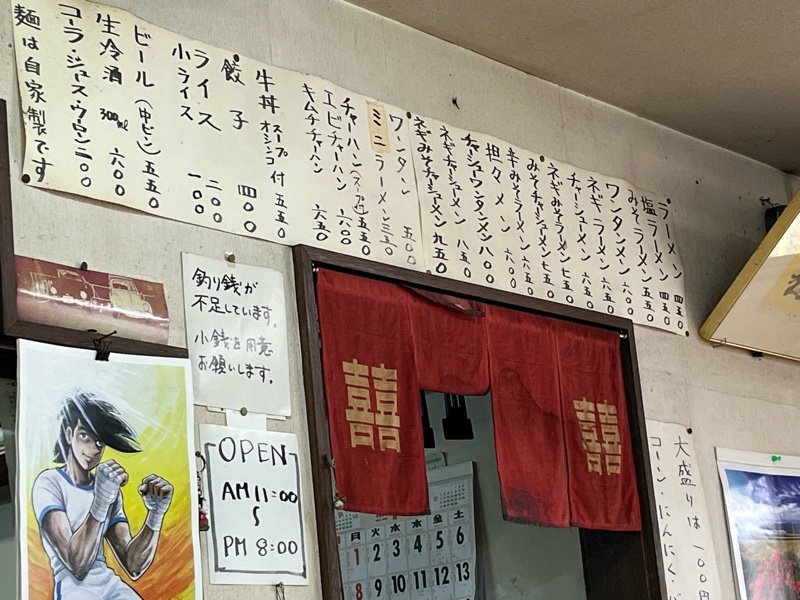 ラーメン 四五0
塩ラーメン 四五0
みそラーメン 五五0
ワンタンメン 六00
ネギラーメン 六五0
チャーシューメン 六五0
ネギみそラーメン 七五0
みそチャーシューメン 七五0
辛みそラーメン 六五0
担々メン 六00
チャーシューワンタンメン 八00
ネギチャーシューメン 八五0
ネギみそチャーシューメン 九五0
ワンタン 五00
ミニラーメン 三五0
チャーハン(スープ付) 五五0
エビチャーハン 六00
キムチチャーハン 六五0
牛丼 スープオシンコ付 五五0
餃子 四00
ライス 二00
小ライス 一00
ビール(中ビン) 五五0
生冷酒 300ml 六00
コーラ・ジュース・ウーロン 二00
麺は自家製です
釣り銭が
不足しています。
小銭を用意
お願いします。
OPEN
AM 11:00
〜
PM 8:00
囍
囍
大盛りは一00円
コーン・にんにく・
月 火 水 木 金 土
1 2 3 4 5 6
8 9 10 11 12 13